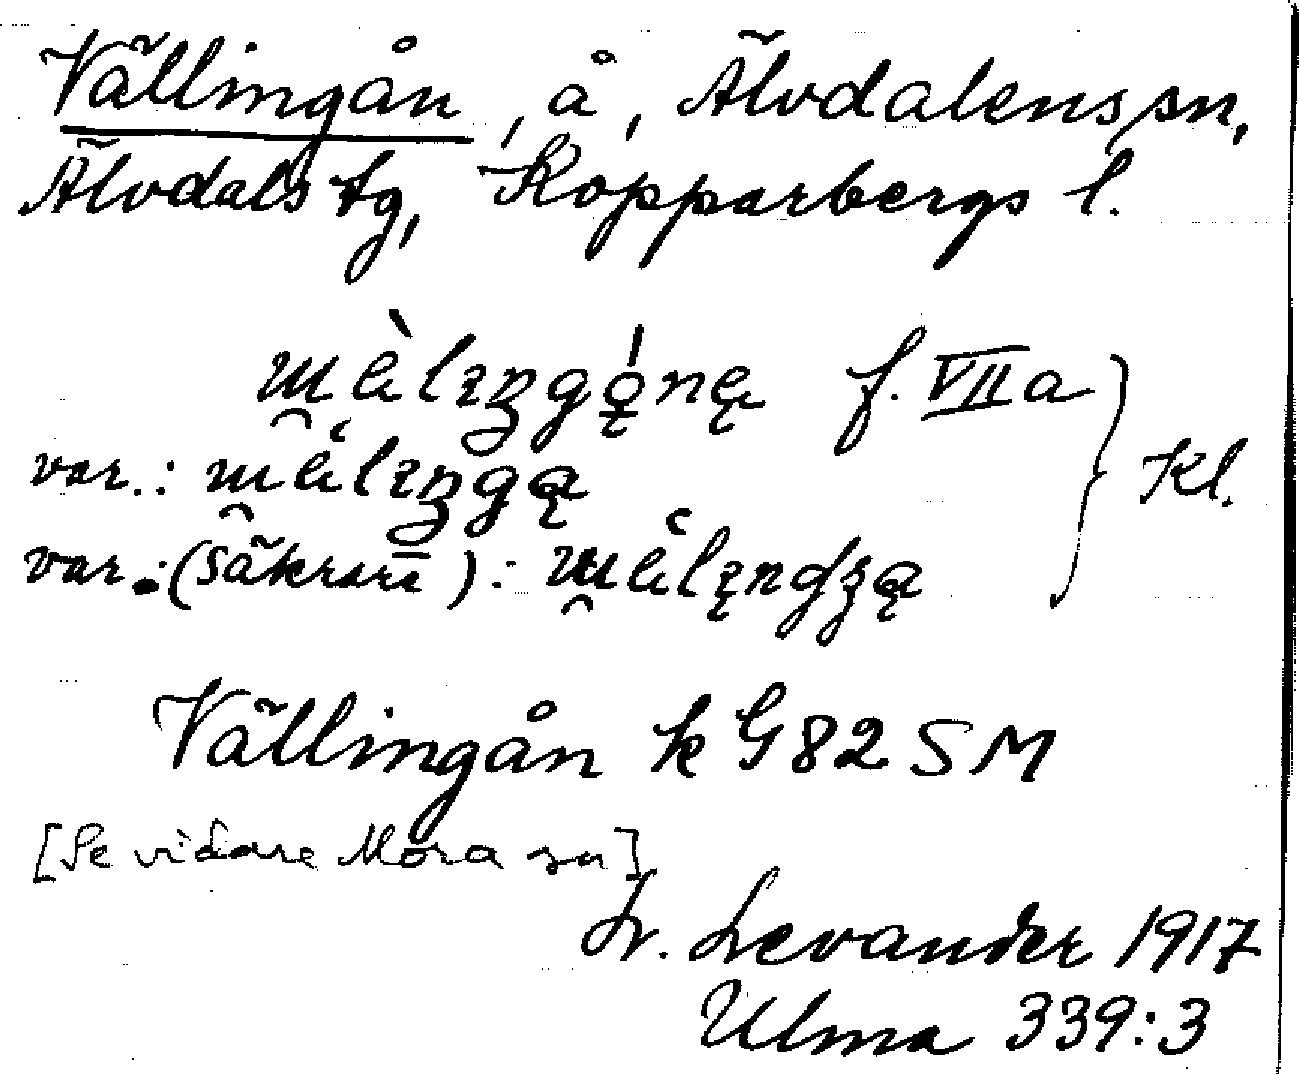 Vällingån, å, Älvdalens sn,
Älvdals tg, Kopparbergs l.
f. VIIa
var.:
var. (säkrare):
Kl.
Vällingån k G82 SM
[Se vidare Mora sn]
Lr. Levander 1917
Ulma 339:3